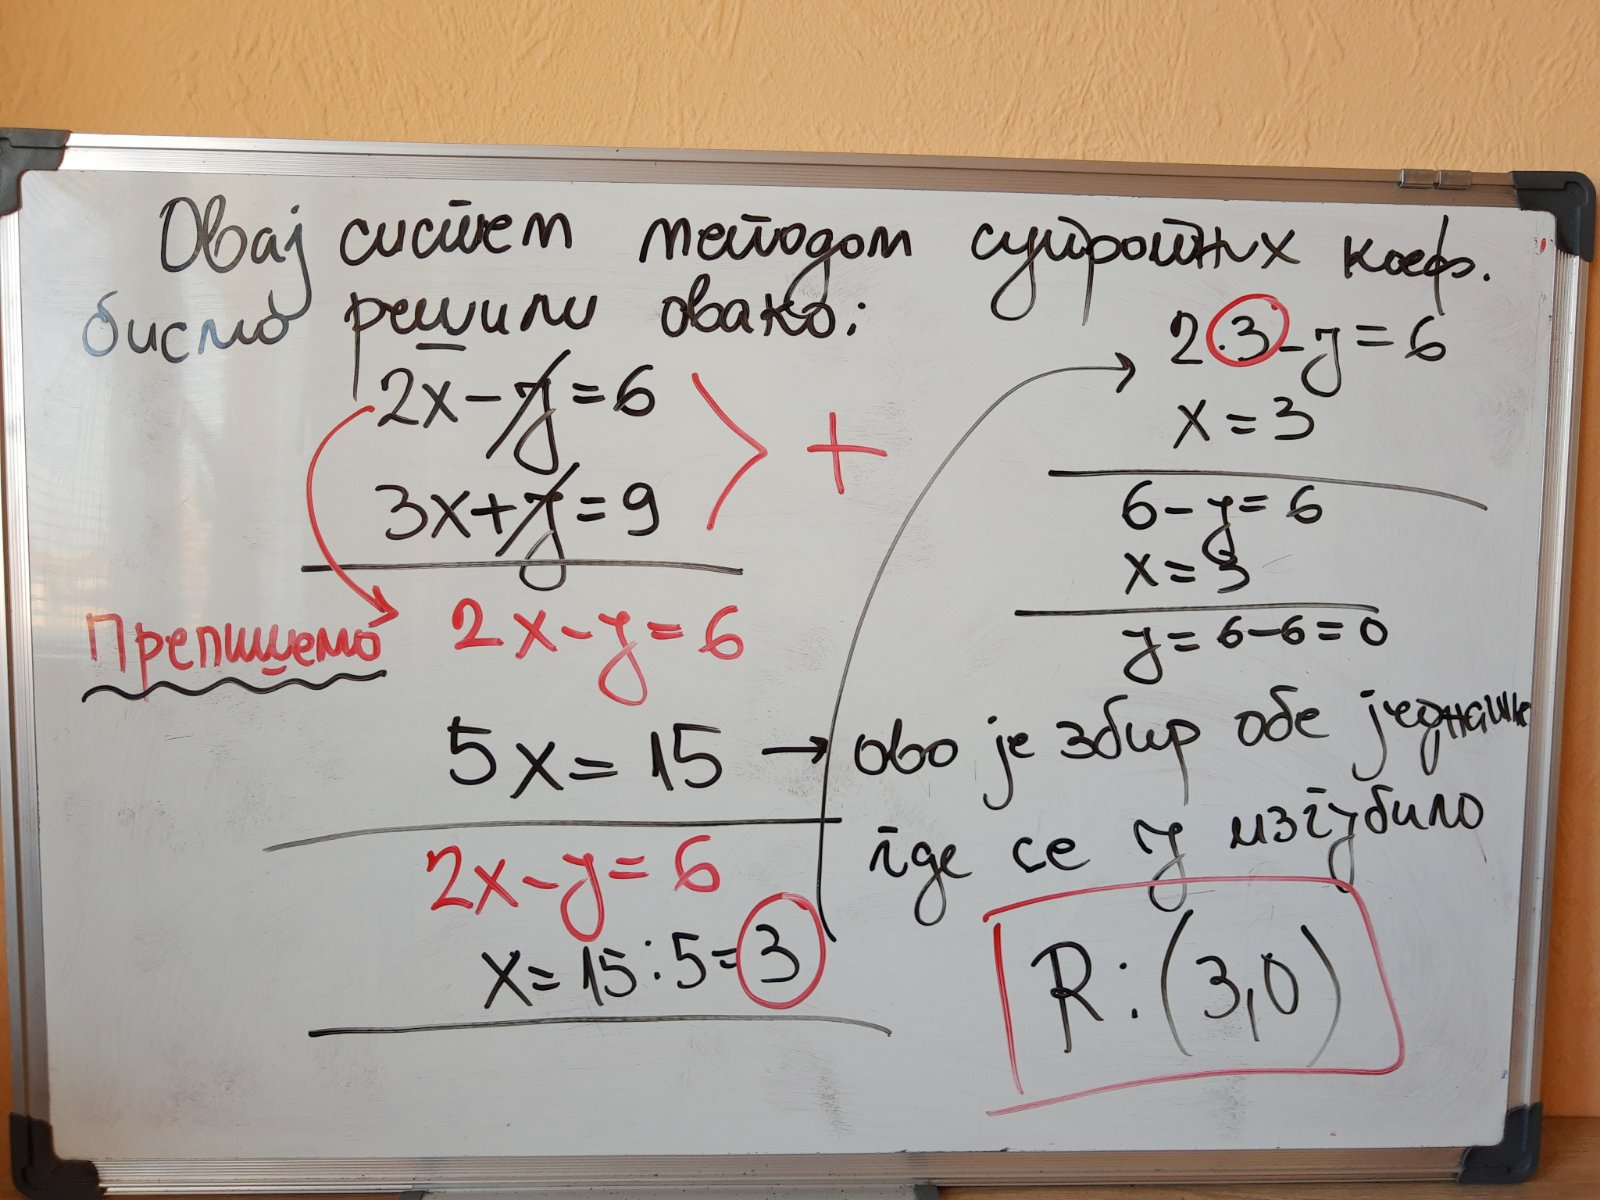 Овај систем методом супротних коеф.
бисмо решили овако:
2x-y=6
3x+y=9
+
Препишемо
2x-y=6
5x=15 → ово је збир обе једначине
где се y изгубило
2x-y=6
x=15:5=3
2·3-y=6
x=3
6-y=6
x=3
y=6-6=0
R:(3,0)